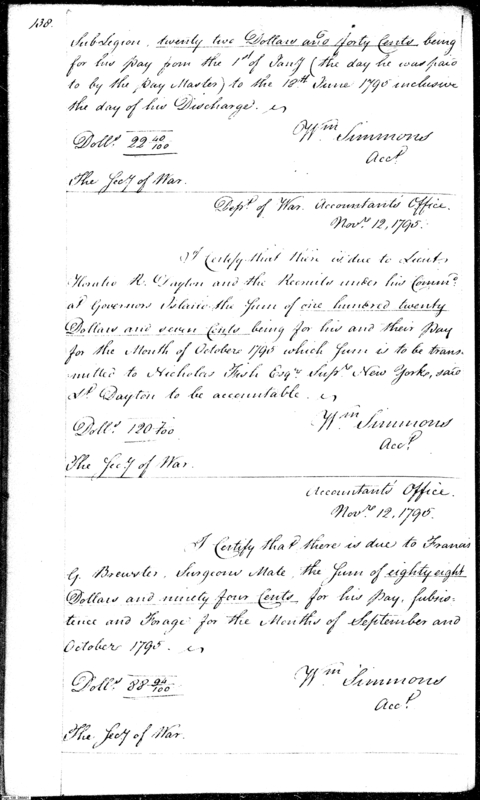 138.
Sub Legion, twenty two Dollars and forty Cents, being
for his pay from the 1st of Jany (the day he was paid
to by the Pay Master) to the 12th June 1795 inclusive
the day of his Discharge.
Dolls. 22 40/100
Wm Simmons
Acct.
The Secy of War.
Dept. of War. Accountant's Office.
Novr. 12, 1795.
I Certify that there is due to Lieut.
Horatio R. Dayton and the Recruits under his Commd.
at Governors Island the Sum of one hundred twenty
Dollars and seven Cents being for his and their pay
for the Month of October 1795 which Sum is to be trans-
mitted to Nicholas Fish Esqr. Supr. New York, said
Lt. Dayton to be accountable.
Dolls. 120 7/00
Wm Simmons
Acct.
The Secy of War.
Accountant's Office.
Novr. 12, 1795.
I Certify that there is due to Francis
G. Brewster, Surgeons Mate, the Sum of eighty eight
Dollars and ninety four Cents for his Pay, subsis-
tence and Forage for the Months of September and
October 1795.
Dolls. 88 94/100
Wm Simmons
Acct.
The Secy of War.